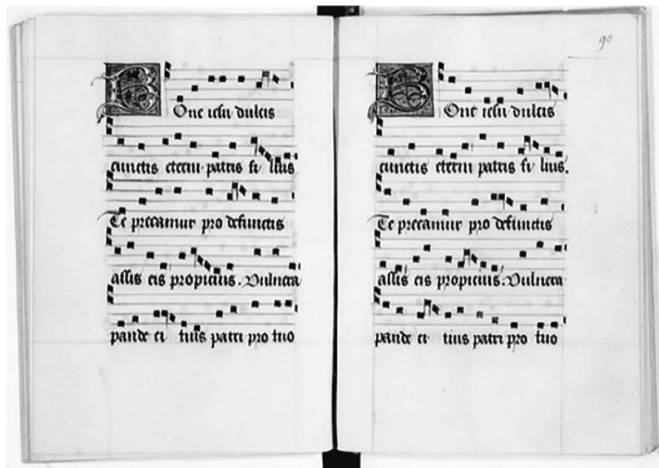 Bone iesu dulcis
cunctis eterni patris fi lius
Te precamur pro defunctis
assis eis propicius. Vulnera
pande ei tius patri pro tuo
90
Bone iesu dulcis
cunctis eterni patris fi lius.
Te precamur pro defunctis
assis eis propicius. Vulnera
pande ei tius patri pro tuo